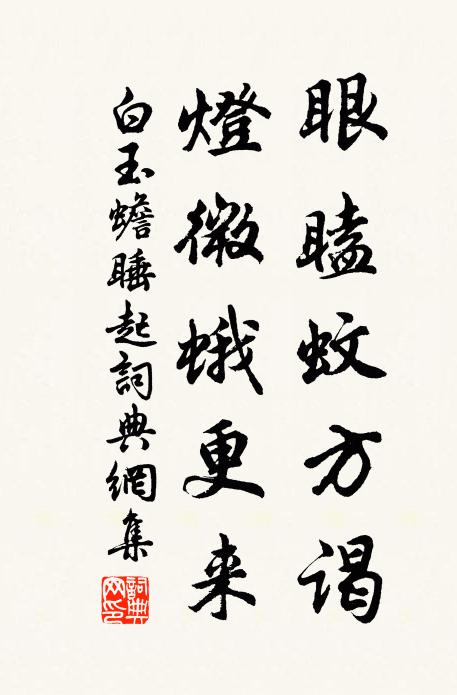 眼瞌蚊方谒
燈微蛾更来
白玉蟾睡起詞典網集
詞典網印